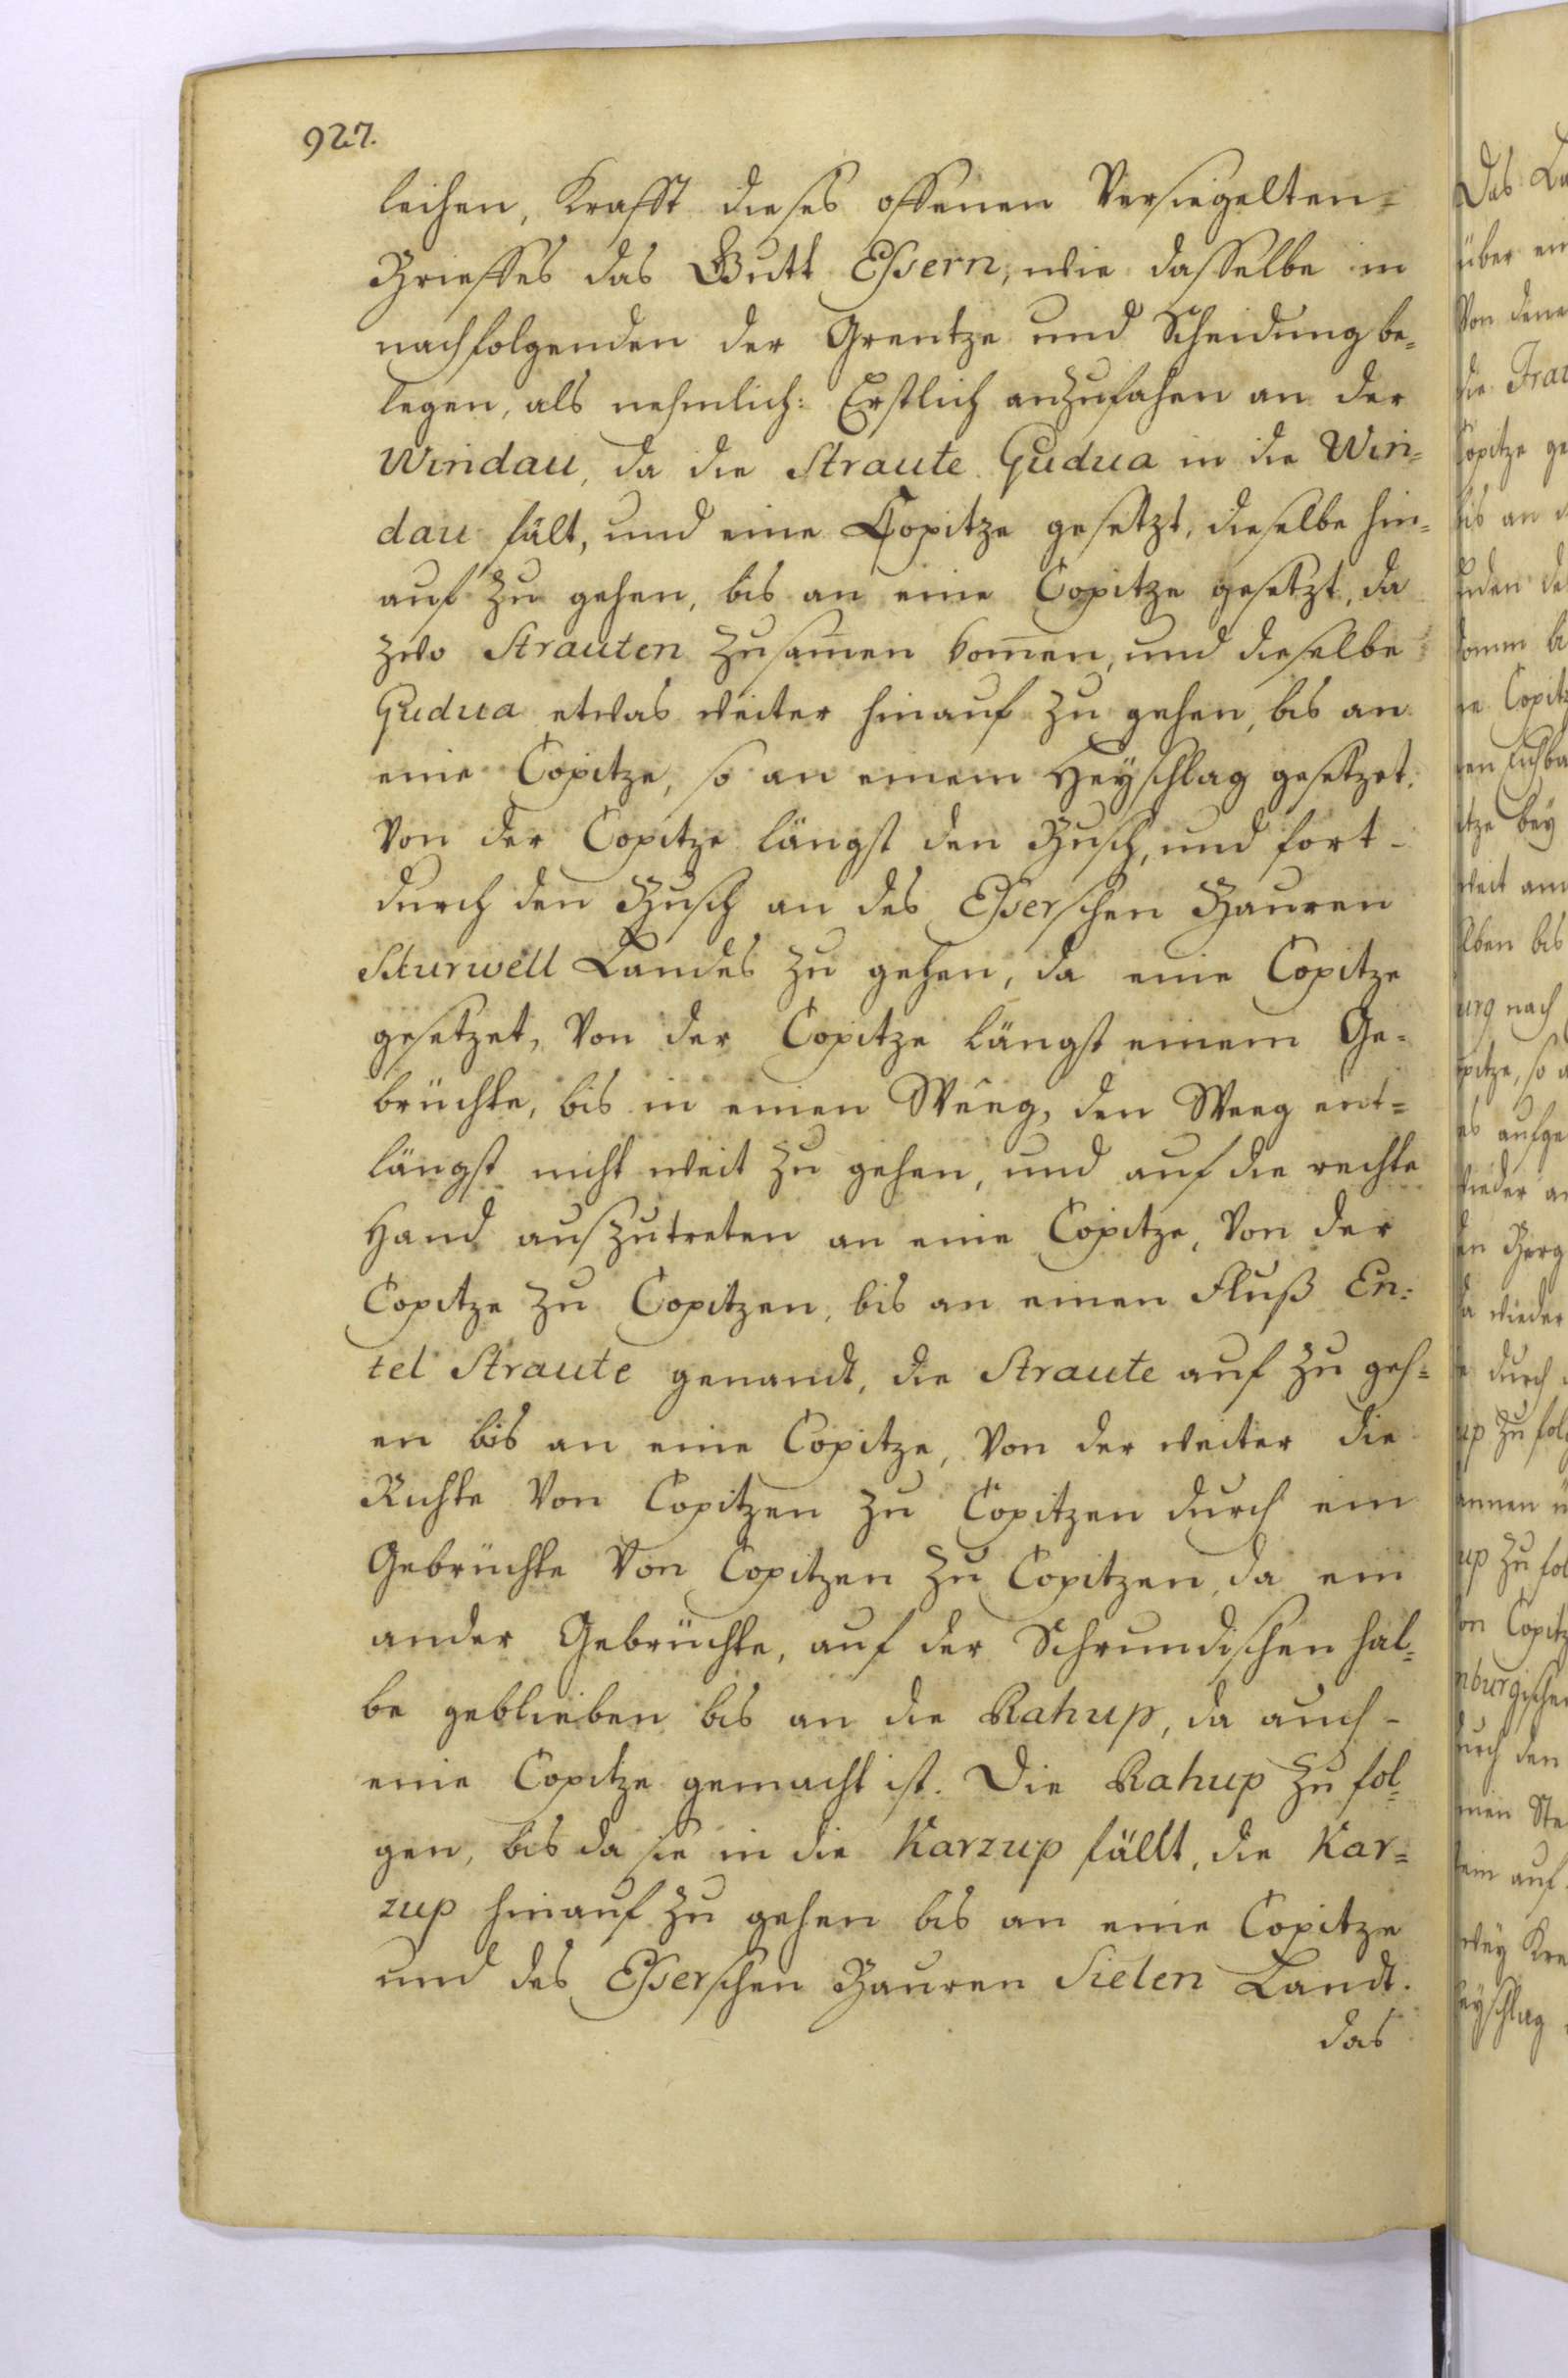 927.
leihen, Krafft dieses offenen Versiegelten=
Brieffes das Gutt Essern, wie dasselbe in
nachfolgenden der Grentze und Scheidung be=
legen, als nehmlich: Erstlich anzufahen an der
Windau, da die Straute Gudua in die Win=
dau fält, und eine Copitze gesetzt, dieselbe hin=
auf zu gehen, bis an eine Copitze gesetzt, da
zwo Strauten zusam̄en kom̄en, und dieselbe
Gudua etwas weiter hinauf zu gehen, bis an
eine Copitze, so an einem Heyschlag gesetzet.
Von der Copitze längst den Busch, und fort-
durch den Busch an des Esserschen Bauren
Skurwell Landes zu gehen, da eine Copitze
gesetzet, Von der Copitze längst einem Ge=
brüchte, bis in einen Weeg, den Weeg ent=
längst nicht weit zu gehen, und auf die rechte
Hand auszutreten an eine Copitze, Von der
Copitze zu Copitzen, bis an einen Fluß En=
tel Straute genandt, die Straute auf zu geh=
en bis an eine Copitze, Von der weiter die
Richte Von Copitzen zu Copitzen durch ein
Gebrüchte Von Copitzen zu Copitzen, da ein
ander Gebrüchte, auf der Schrundischen hal=
be geblieben bis an die Rahup, da auch-
eine Copitze gemacht ist. Die Rahup zu fol=
gen, bis da sie in die Karzup fällt, die Kar=
zup hinauf zu gehen bis an eine Copitze
und des Esserschen Bauren Sielen Landt.
das